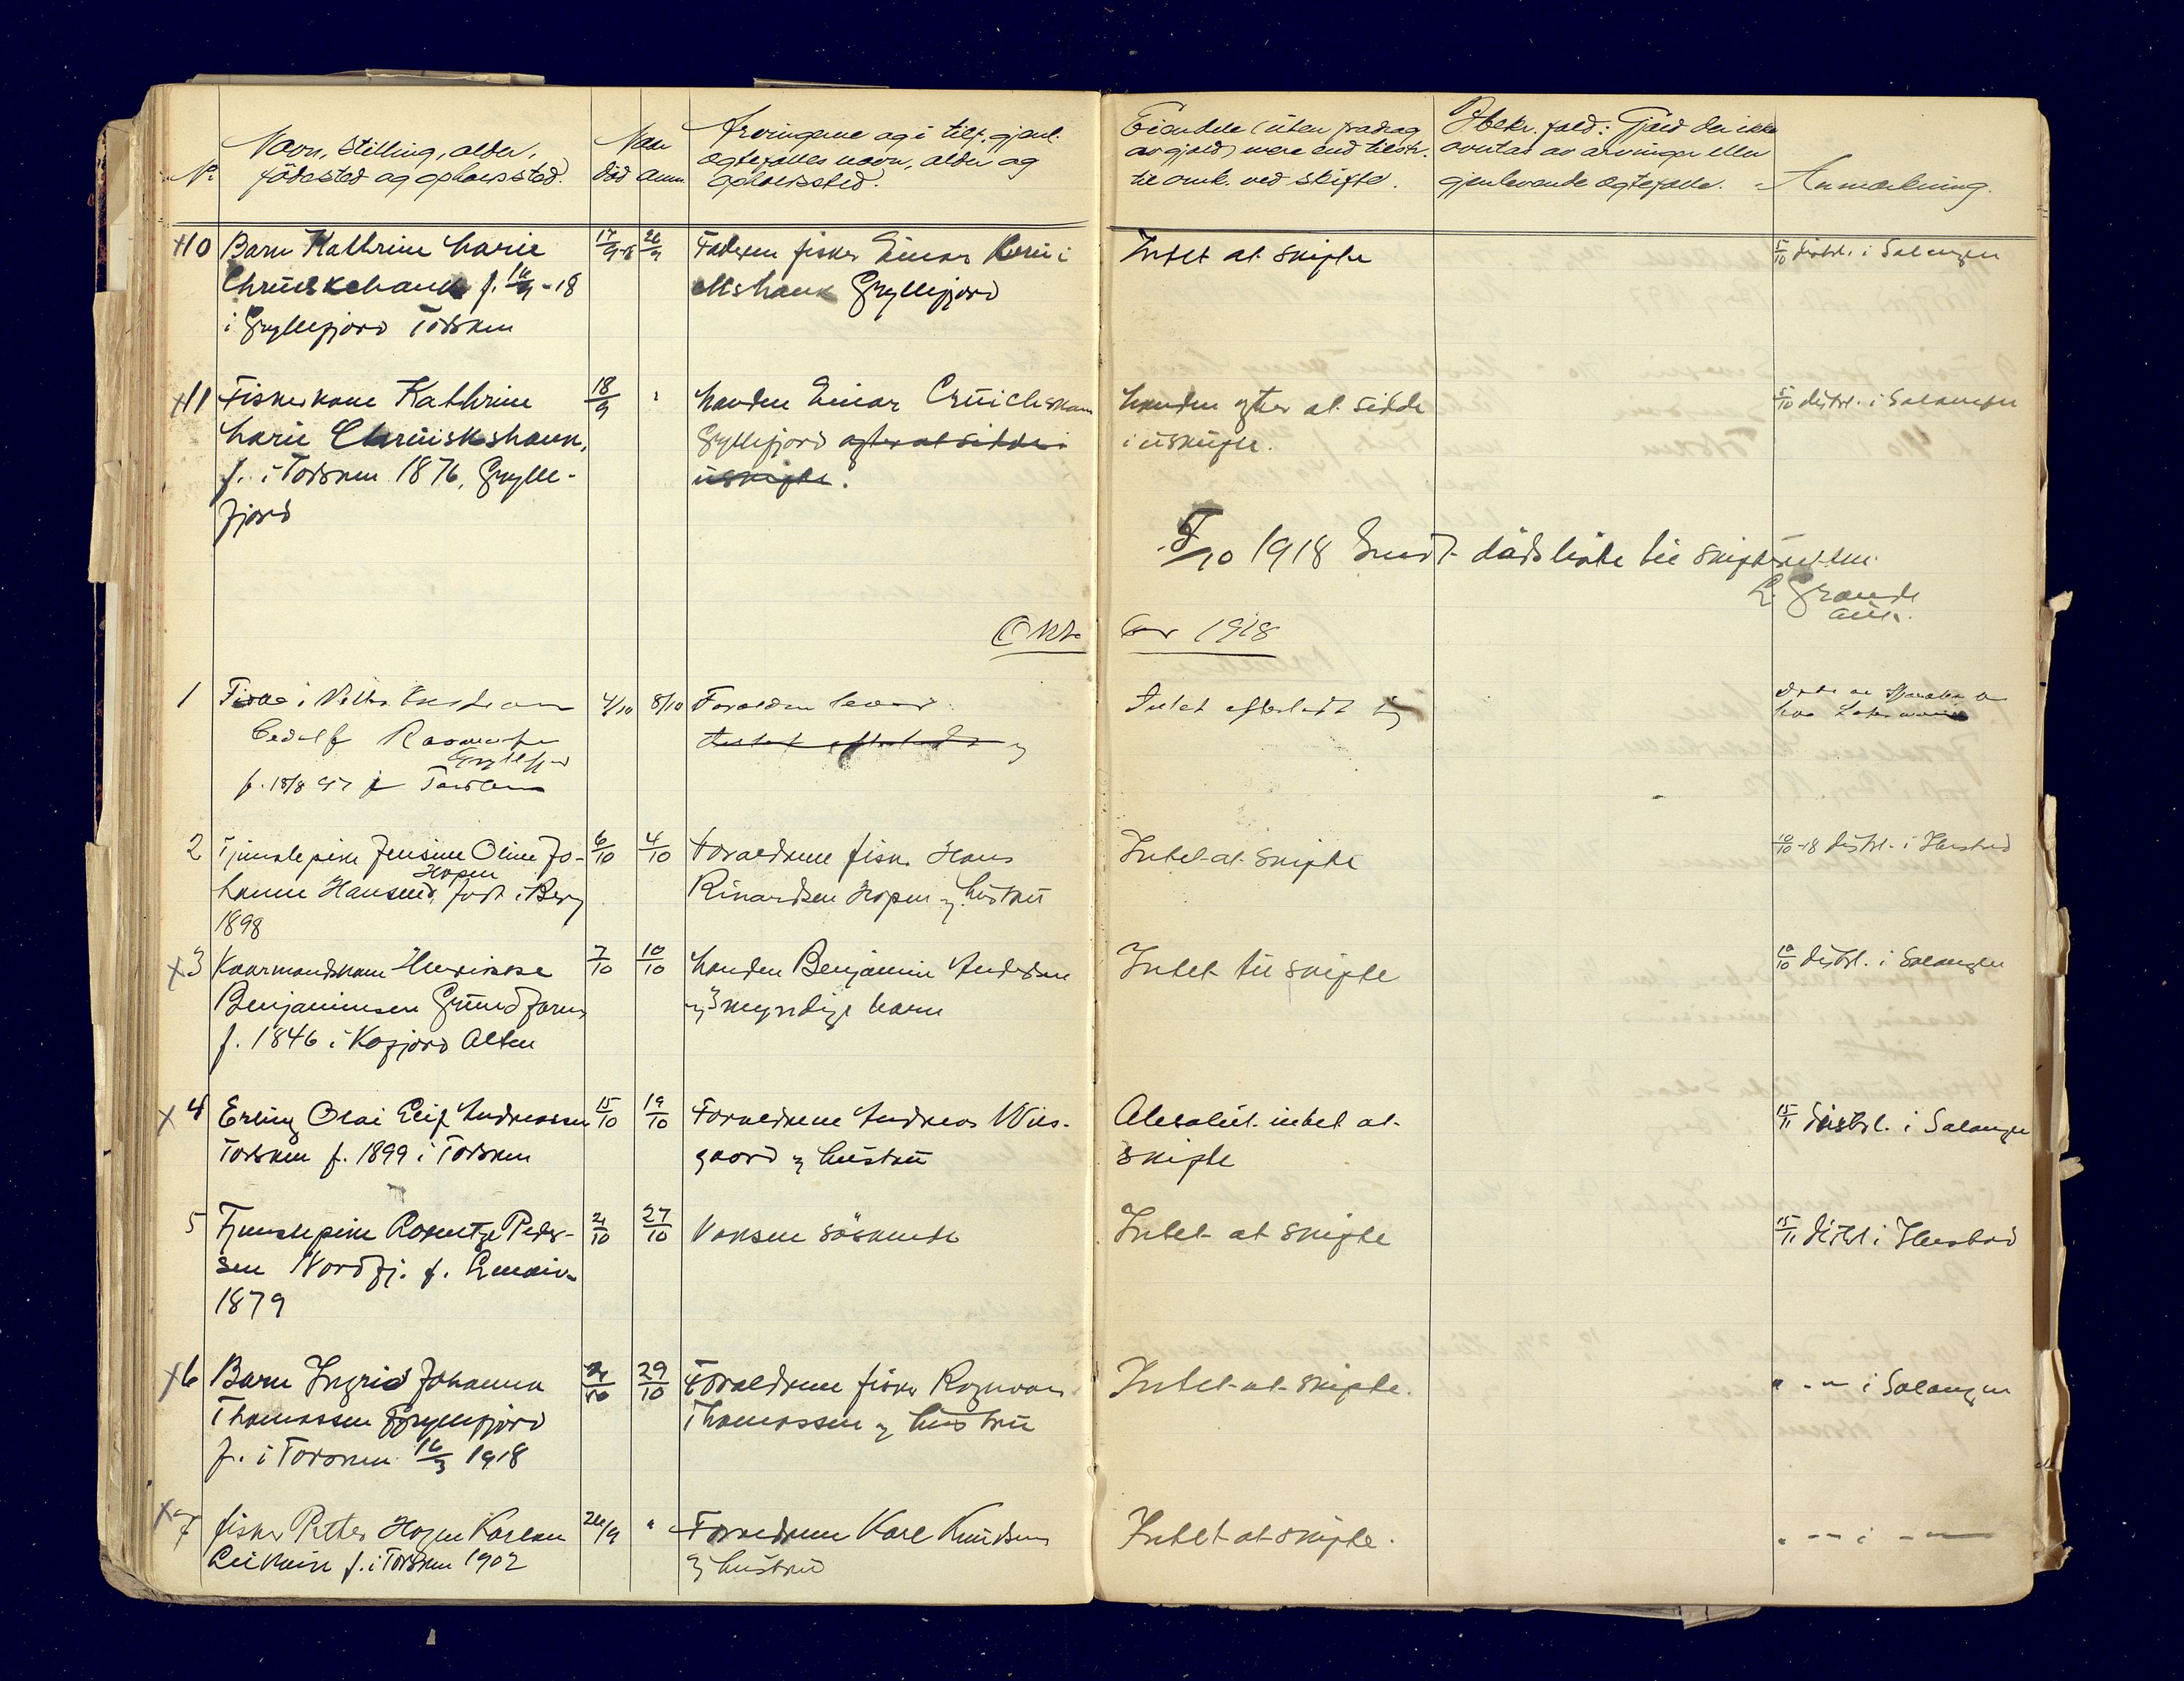 No
Navn, stilling, alder,
fødested og opholdssted.
Naar
død anm.
Arvingerne og i tilf. gjenl.
ægtefælles navn, alder og
opholdssted.
Eiendele (uten fradrag
av gjæld) mere end tilstr.
til omk. ved skifte.
I bekr. fald: Gjæld der ikke
overtas av arvinger eller
gjenlevende ægtefælle.
Anmærkning.
10 Barn Kathrine Marie
f. -18
i Gryllefjord Torsken
Faderen fisker Einar
Gryllefjord
Intet at skifte
5/10 distrl. i Salangen
11 Fiskerkone Kathrine
Marie
f. i Torsken 1876, Grylle-
fjord
18/9 "
Manden Einar Cruickshank
Gryllefjord agter at sidde i
uskifte.
Manden agter at sidde
i uskifte.
5/10 distrl. i Salangen
5/10 1918 Sendt dødsliste til skifteretten.
L. Grande
Oktober 1918
1 Fisker Kristian
Bedolf
Gryllefjord
f. 18/8 97 Torsken
4/10 8/10
Forældre
Intet efterladt sig
2 Tjenstepike Jensine Oline Jo-
Hopen
hanne Hansen, født i Berg
1898
6/10 4/10
Forældrene fisk. Hans
Rinardsen Hopen og hustru
Intet at skifte
10/10-18 distrl. i Harstad
3 Kaarmandskone
Benjaminsen Grundfarnes
f. 1846 i Kafjord Alten
7/10 10/10
Manden Benjamin Andersen
og 3 myndige barn
Intet til skifte
10/10 distrl. i Salangen
4 Erling Olai Leif Andreassen
Torsken f. 1899 i Torsken
15/10 19/10
Forældrene Andreas
og hustru
Absolut intet at
skifte
15/11 distrl. i Salangen
5 Tjenstepike Peder-
sen Nordfj. f. Lenvik
1879
21/10 27/10
Voksne søskende
Intet at skifte
15/11 distrl. i Harstad
6 Barn Ingrid Johanna
Thomassen Gryllefjord
f. i Torsken 16/3 1918
29/10
Forældrene fisker Ragnvar
Thomassen og hustru
Intet at skifte.
" - " i Salangen
7 fisker Petter Hagen Karlsen
f. i Torsken 1902
26/9 "
Forældrene Karl Knudsen
og hustru
Intet at skifte.
" - " i - " -